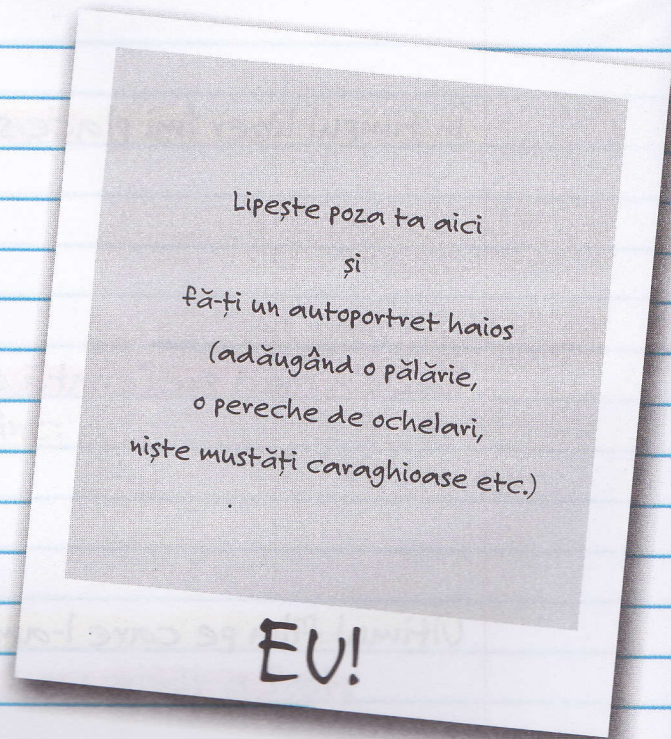 Lipește poza ta aici
și
fă-ți un autoportret haios
(adăugând o pălărie,
o pereche de ochelari,
niște mustăți caraghioase etc.)
EU!